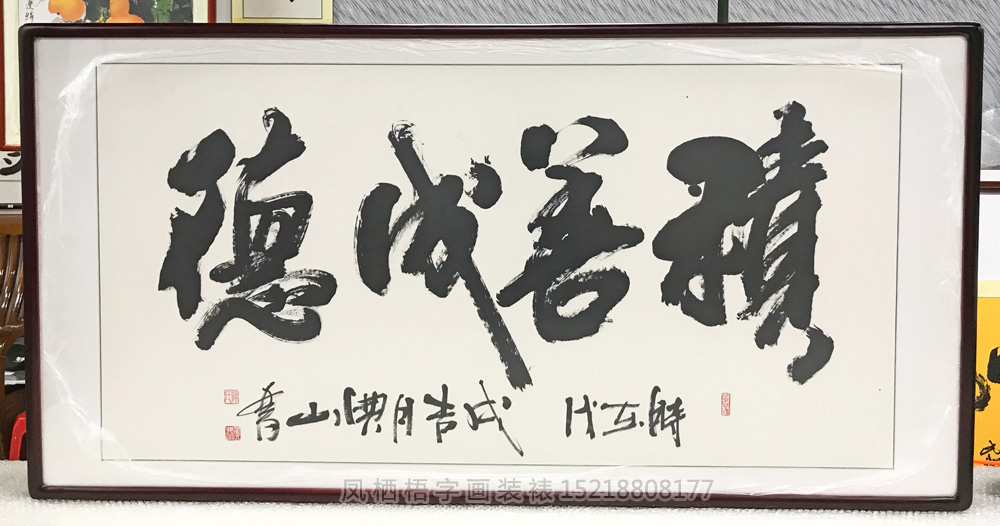 積善成德
時在戊戌吉月山書
凤栖梧字画装裱15218808177